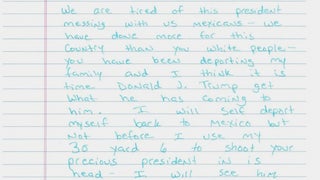 We are tired of this president
messing with us mexicans - we
have done more for this
Country than you white people -
you have been deporting my
family and I think it is
time Donald J. Trump get
what he has coming to
him - I will self deport
myself back to Mexico but
not before I use my
30 yard 6 to shoot your
precious president in is
head - I will see him